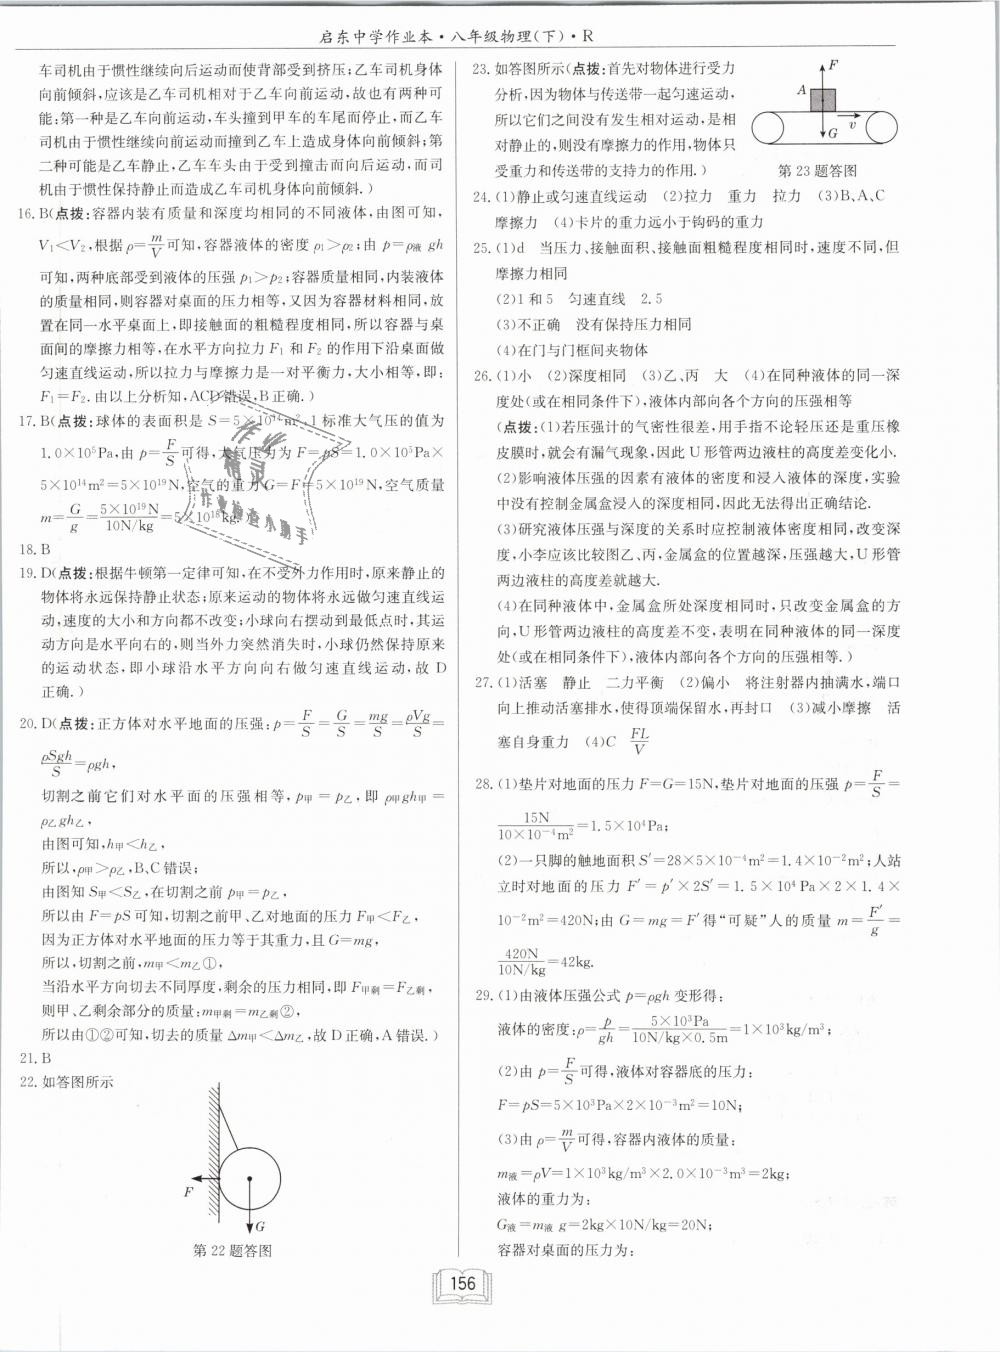 启东中学作业本·八年级物理(下)·R
车司机由于惯性继续向后运动而使背部受到挤压;乙车司机身体
向前倾斜,应该是乙车司机相对于乙车向前运动,故也有两种可
能:第一种是乙车向前运动,车头撞到甲车的车尾而停止,而乙车
司机由于惯性继续向前运动而撞到乙车上造成身体向前倾斜;第
二种可能是乙车静止,乙车车头由于受到撞击而向后运动,而司
机由于惯性保持静止而造成乙车司机身体向前倾斜.)
16. B(点拨:容器内装有质量和深度均相同的不同液体,由图可知,
V₁<V₂,根据ρ=m/V可知,容器液体的密度ρ₁>ρ₂;由p=ρ液gh
可知,两种底部受到液体的压强p₁>p₂;容器质量相同,内装液体
的质量相同,则容器对桌面的压力相等,又因为容器材料相同,放
置在同一水平桌面上,即接触面的粗糙程度相同,所以容器与桌
面间的摩擦力相等,在水平方向拉力F₁和F₂的作用下沿桌面做
匀速直线运动,所以拉力与摩擦力是一对平衡力,大小相等,即:
F₁=F₂.由以上分析知,ACD错误,B正确.)
17. B(点拨:球体的表面积是S=5×10¹⁴m²,1标准大气压的值为
1.0×10⁵Pa,由p=F/S可得,大气压力为F=pS=1.0×10⁵Pa×
5×10¹⁴m²=5×10¹⁹N,空气的重力G=F=5×10¹⁹N,空气质量
m=G/g=5×10¹⁹N/10N/kg=5×10¹⁸kg.)
18. B
19. D(点拨:根据牛顿第一定律可知,在不受外力作用时,原来静止的
物体将永远保持静止状态;原来运动的物体将永远做匀速直线运
动,速度的大小和方向都不改变;小球向右摆动到最低点时,其运
动方向是水平向右的,则当外力突然消失时,小球仍然保持原来
的运动状态,即小球沿水平方向向右做匀速直线运动,故D
正确.)
20. D(点拨:正方体对水平地面的压强:p=F/S=G/S=mg/S=ρVg/S=
ρSgh/S=ρgh,
切割之前它们对水平面的压强相等,p甲=p乙,即ρ甲gh甲=
ρ乙gh乙,
由图可知,h甲<h乙,
所以,ρ甲>ρ乙,B、C错误;
由图知S甲<S乙,在切割之前p甲=p乙,
所以由F=pS可知,切割之前甲、乙对地面的压力F甲<F乙,
因为正方体对水平地面的压力等于其重力,且G=mg,
所以,切割之前,m甲<m乙①,
当沿水平方向切去不同厚度,剩余的压力相同,即F甲剩=F乙剩,
则甲、乙剩余部分的质量:m甲剩=m乙剩②,
所以由①②可知,切去的质量Δm甲<Δm乙,故D正确,A错误.)
21. B
22. 如答图所示
F
G
第22题答图
23. 如答图所示(点拨:首先对物体进行受力
分析,因为物体与传送带一起匀速运动,
所以它们之间没有发生相对运动,是相
对静止的,则没有摩擦力的作用,物体只
受重力和传送带的支持力的作用.)
F
A
v
G
第23题答图
24. (1)静止或匀速直线运动 (2)拉力 重力 拉力 (3)B、A、C
摩擦力 (4)卡片的重力远小于钩码的重力
25. (1)d 当压力、接触面积、接触面粗糙程度相同时,速度不同,但
摩擦力相同
(2)1和5 匀速直线 2.5
(3)不正确 没有保持压力相同
(4)在门与门框间夹物体
26. (1)小 (2)深度相同 (3)乙、丙 大 (4)在同种液体的同一深
度处(或在相同条件下),液体内部向各个方向的压强相等
(点拨:(1)若压强计的气密性很差,用手指不论轻压还是重压橡
皮膜时,就会有漏气现象,因此U形管两边液柱的高度差变化小.
(2)影响液体压强的因素有液体的密度和浸入液体的深度,实验
中没有控制金属盒浸入的深度相同,因此无法得出正确结论.
(3)研究液体压强与深度的关系时应控制液体密度相同,改变深
度,小李应该比较图乙、丙,金属盒的位置越深,压强越大,U形管
两边液柱的高度差就越大.
(4)在同种液体中,金属盒所处深度相同时,只改变金属盒的方
向,U形管两边液柱的高度差不变,表明在同种液体的同一深度
处(或在相同条件下),液体内部向各个方向的压强相等.)
27. (1)活塞 静止 二力平衡 (2)偏小 将注射器内抽满水,端口
向上推动活塞排水,使得顶端保留水,再封口 (3)减小摩擦 活
塞自身重力 (4)C FL/V
28. (1)垫片对地面的压力F=G=15N,垫片对地面的压强p=F/S=
15N/10×10⁻⁴m²=1.5×10⁴Pa;
(2)一只脚的触地面积S′=28×5×10⁻⁴m²=1.4×10⁻²m²;人站
立时对地面的压力F′=p′×2S′=1.5×10⁴Pa×2×1.4×
10⁻²m²=420N;由G=mg=F′得“可疑”人的质量m=F′/g=
420N/10N/kg=42kg.
29. (1)由液体压强公式p=ρgh变形得:
液体的密度:ρ=p/gh=5×10³Pa/10N/kg×0.5m=1×10³kg/m³;
(2)由p=F/S可得,液体对容器底的压力:
F=pS=5×10³Pa×2×10⁻³m²=10N;
(3)由ρ=m/V可得,容器内液体的质量:
m液=ρV=1×10³kg/m³×2.0×10⁻³m³=2kg;
液体的重力为:
G液=m液g=2kg×10N/kg=20N;
容器对桌面的压力为:
156
作业
精灵
作业检查小助手